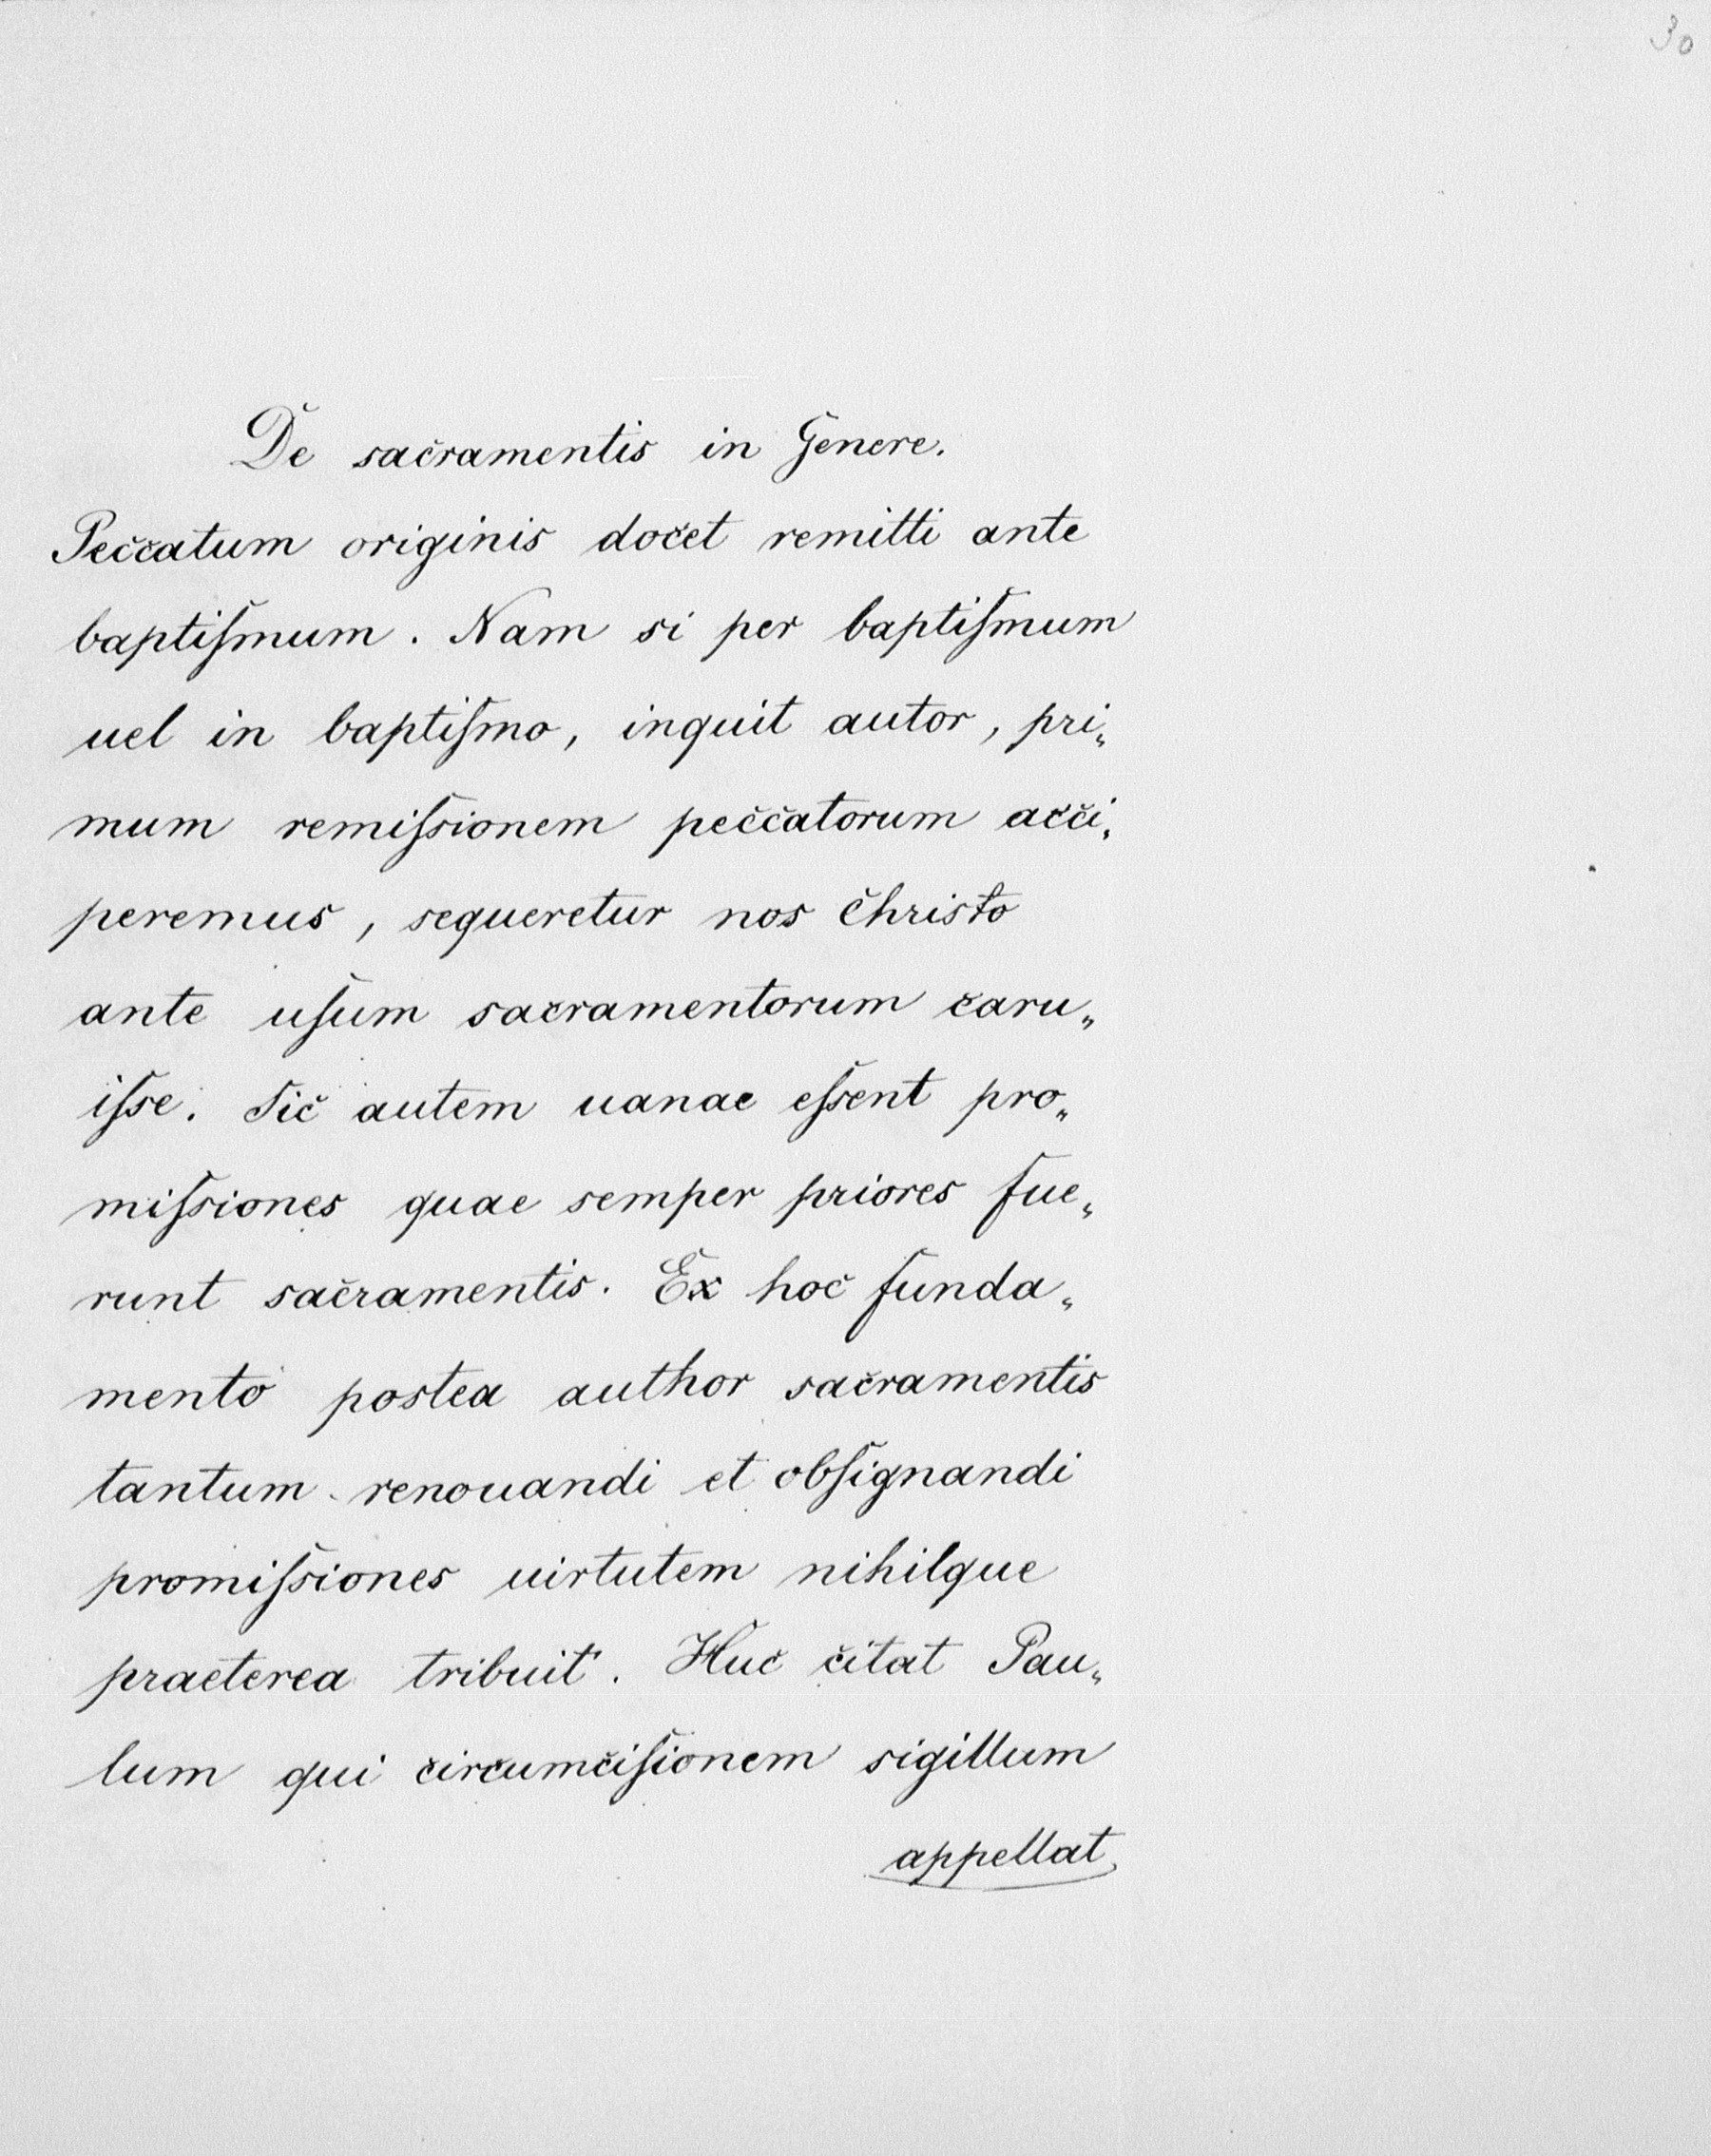 30
De sacramentis in Genere.
Peccatum originis docet remitti ante
baptiſmum. Nam si per baptiſmum
uel in baptiſmo, inquit autor, pri„
mum remiſsionem peccatorum acci„
peremus, sequeretur nos Christo
ante uſum sacramentorum caru„
iſse. Sic autem uanae eſsent pro„
miſsiones quae semper priores fue„
runt sacramentis. Ex hoc funda„
mento postea author sacramentis
tantum renouandi et obſignandi
promiſsiones uirtutem nihilque
praeterea tribuit. Huc citat Pau„
lum qui circumciſionem sigillum
appellat